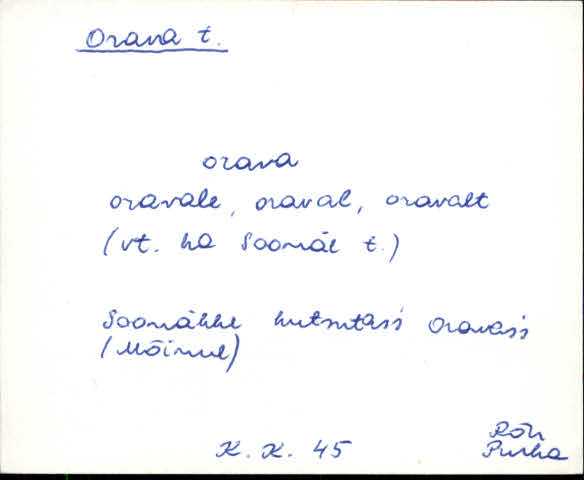 Orava t.
orava
oravale, oraval, oravalt
(vt. ka Soomäe t.)
Soomäkke kutsutass Oravass
(Mõinne)
K. K. 45
Rõu
Purka